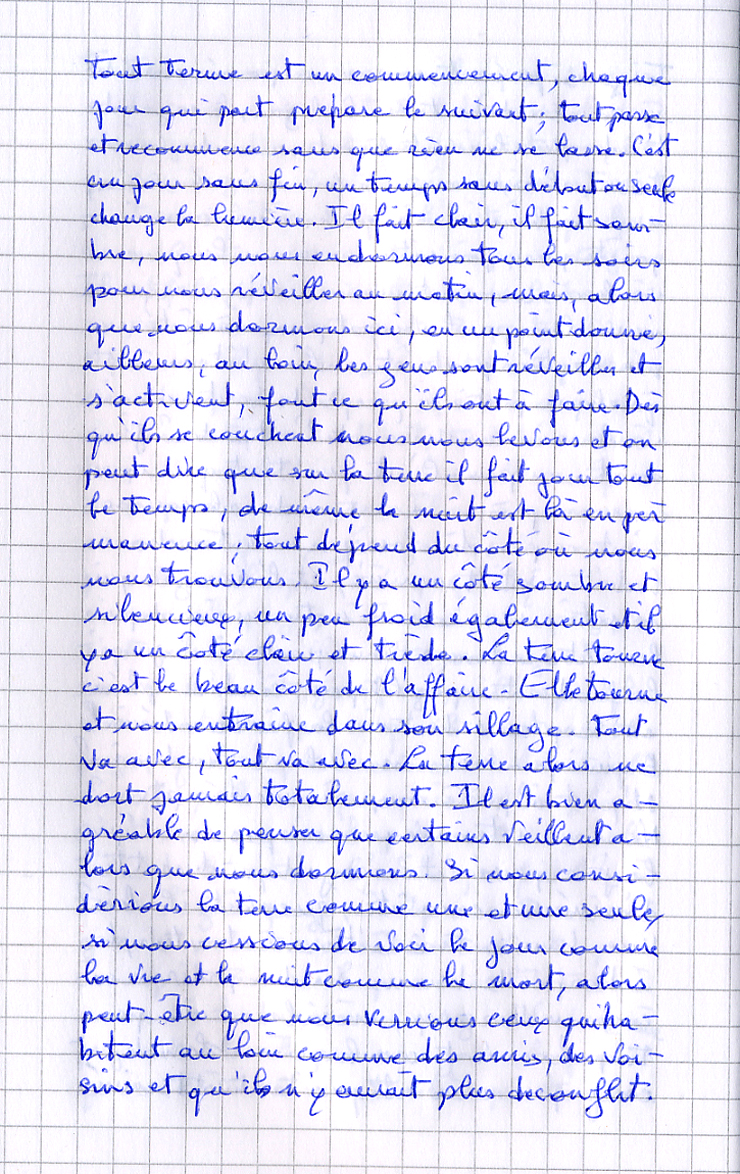 Tout terme est un commencement, chaque
jour qui part prépare le suivant ; tout passe
et recommence sans que rien ne se lasse. C'est
un jour sans fin, un temps sans début ou seule
change la lumière. Il fait clair, il fait som-
bre, nous nous endormons tous les soirs
pour nous réveiller au matin, mais, alors
que nous dormons ici, en un point donné,
ailleurs, au loin, les gens sont réveillés et
s'activent, font ce qu'ils ont à faire. Dès
qu'ils se couchent nous nous levons et on
peut dire que sur la terre il fait jour tout
le temps, de même la nuit est là en per
manence ; tout dépend du côté où nous
nous trouvons. Il y a un côté sombre et
silencieux, un peu froid également et il
ya un côté clair et tiède. La terre tourne
c'est le beau côté de l'affaire - Elle tourne
et nous entraine dans son sillage. Tout
va avec, tout va avec. La terre alors ne
dort jamais totalement. Il est bien a-
gréable de penser que certains veillent a-
lors que nous dormons. Si nous consi-
dérions la terre comme une et une seule,
si nous cessions de voir le jour comme
la vie et la nuit comme la mort, alors
peut-être que nous verrions ceux qui ha-
bitent au loin comme des amis, des voi-
sins et qu'ils n'y aurait plus de conflit.